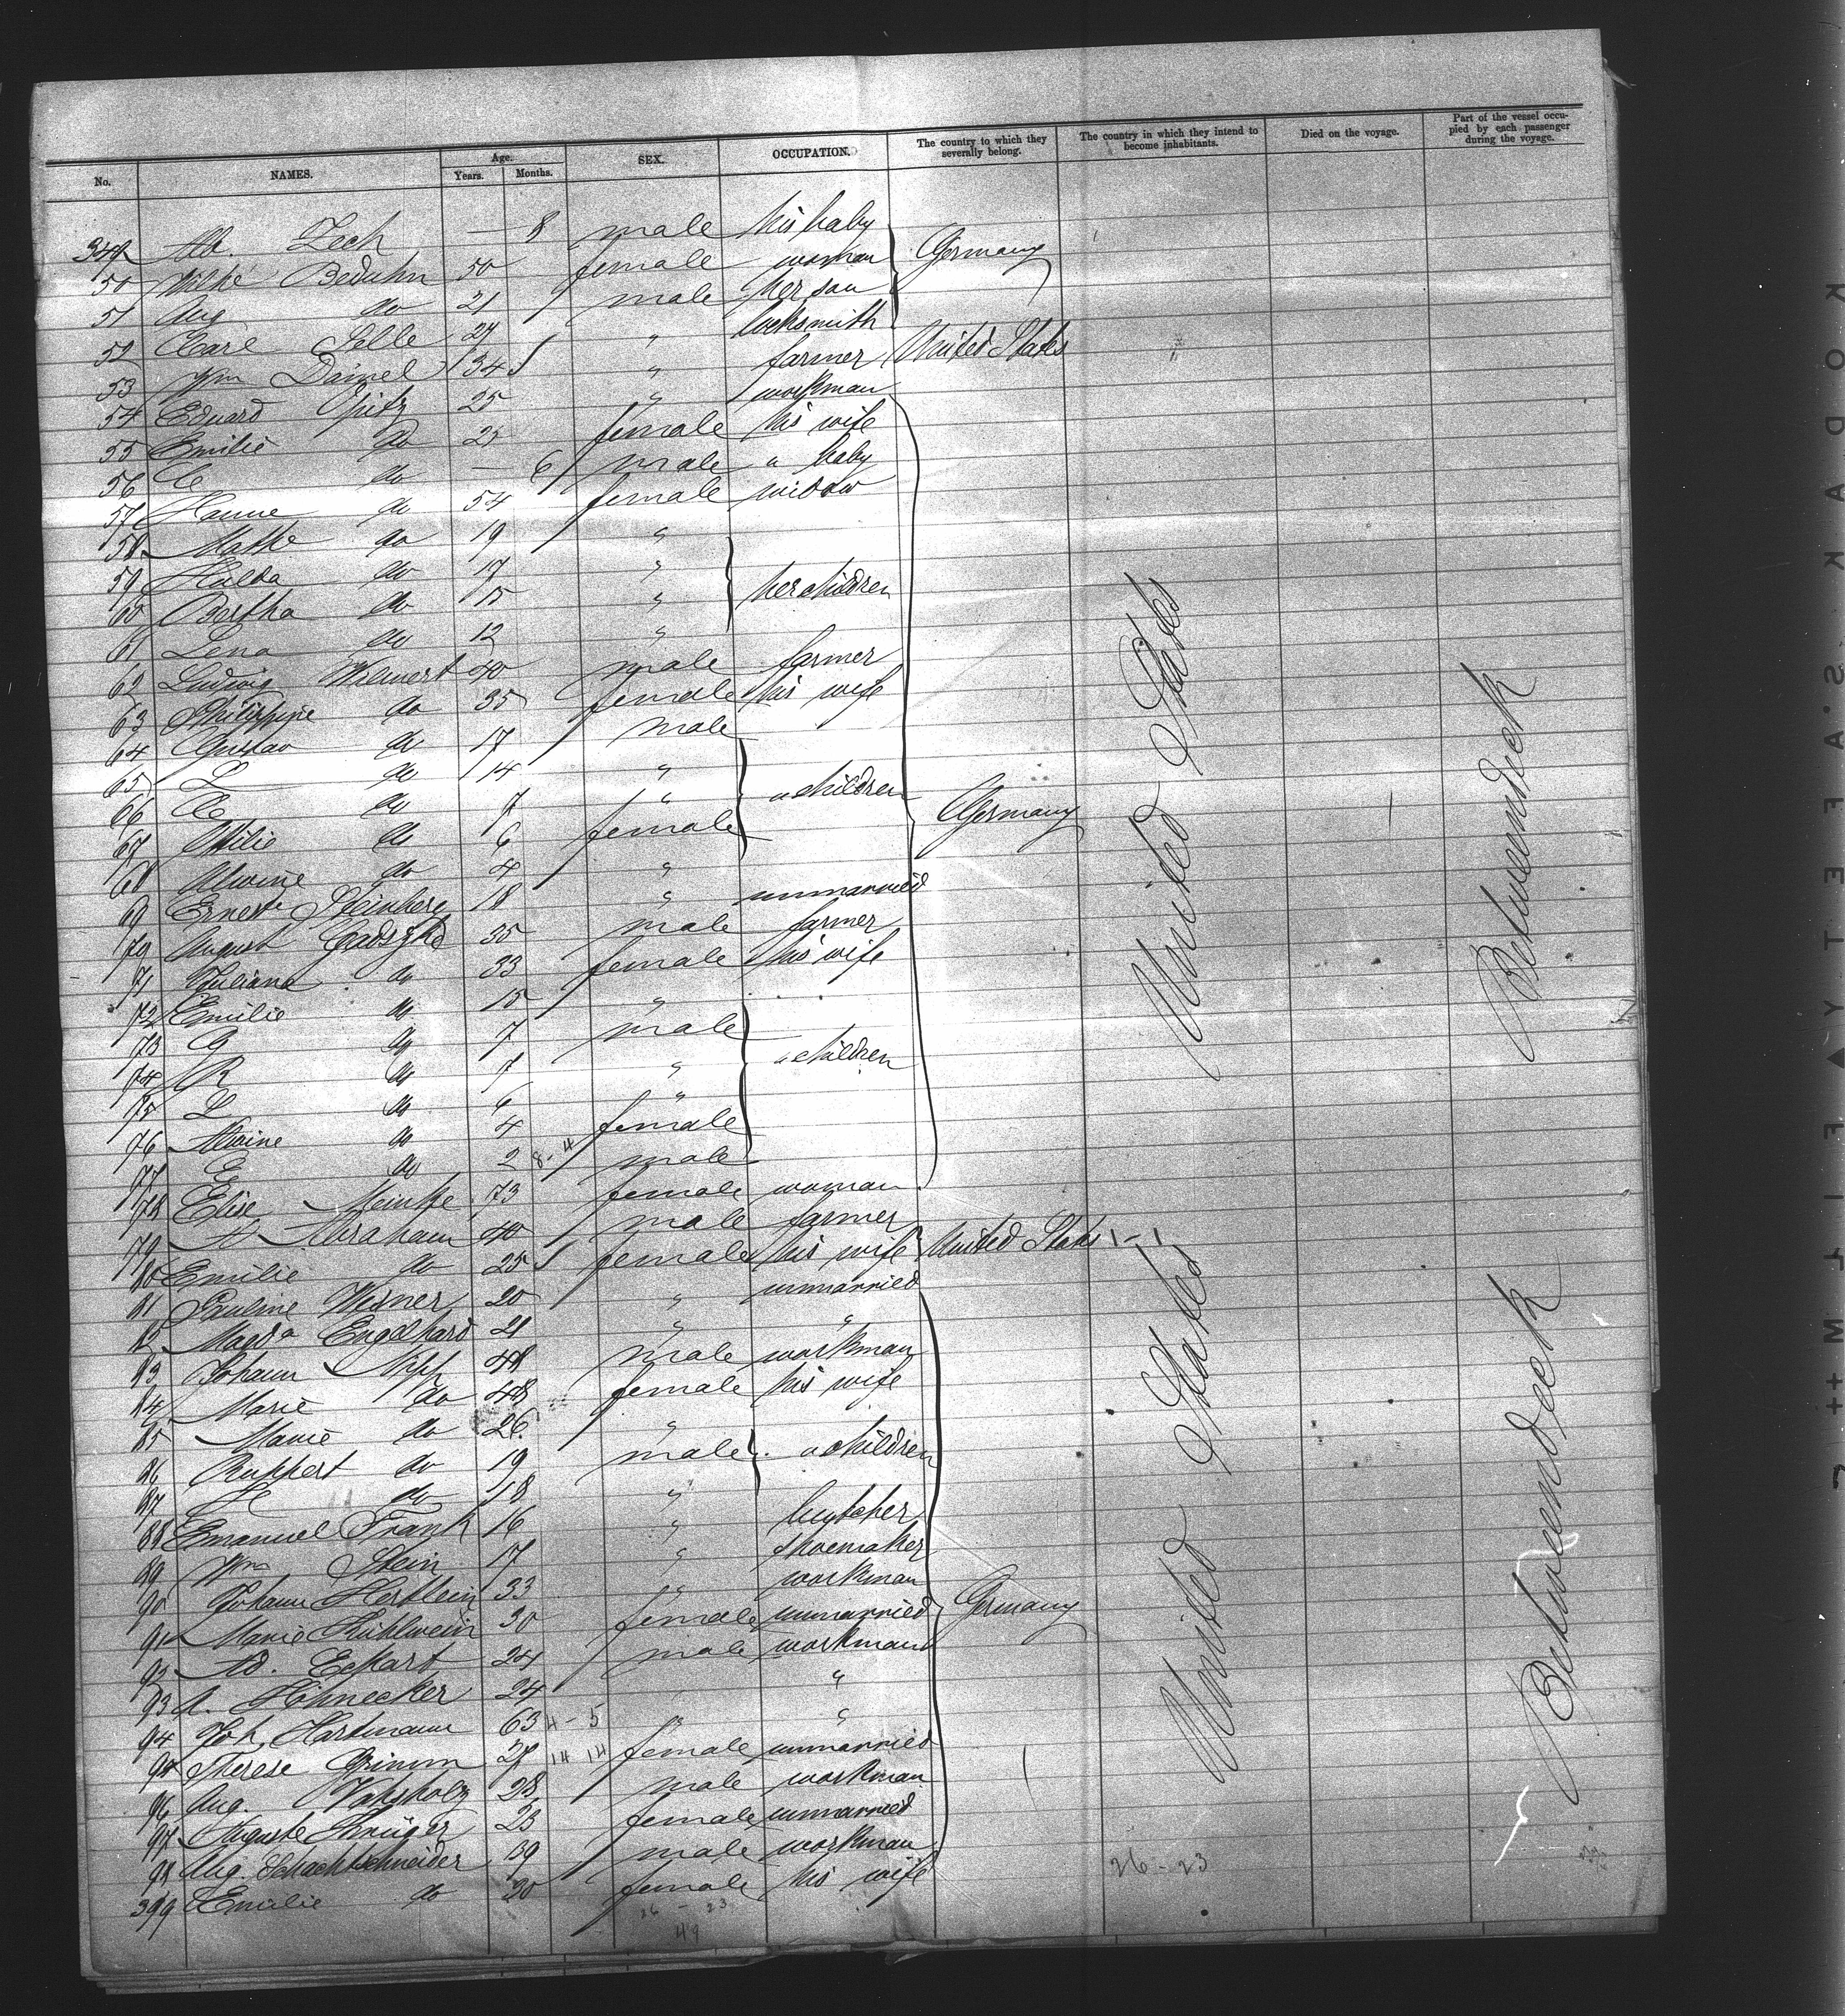 No. NAMES. Age. Years. Months. SEX. OCCUPATION. The country to which they severally belong. The country in which they intend to become inhabitants. Died on the voyage. Part of the vessel occupied by each passenger during the voyage.
349 Alb. Zech — 8 male his baby
50 Wilhe Beduhn 50 female woman Germany
51 Aug do 21 male her son
52 Carl Selle 27 " locksmith
53 Wm Daniel 34 " farmer United States
54 Eduard Opitz 25 " workman
55 Emilie do 25 female his wife
56 C do — 6 male " baby
57 Hanne do 54 female widow
58 Mathe do 19 "
59 Hulda do 17 " her children
60 Bertha do 15 "
61 Lena do 12 "
62 Ludwig 40 male farmer
63 Philippine do 35 female his wife
64 Gustav do 17 male
65 L do 14 " " children
66 C do 7 "
67 Ottilie do 6 female Germany United States Betweendeck
68 Alwine do 4 "
69 Ernest Steinberg 18 " unmarried
70 August 35 male farmer
71 Juliana do 33 female his wife
72 Emilie do 15 "
73 G do 7 male
74 R do 7 " " children
75 L do 6 "
76 Alwine do 4 female
77 E do 2 8-4 male
78 Elise Meinke 73 female woman
79 A Abraham 40 male farmer
80 Emilie do 25 female his wife United States 1-1
81 Pauline Wesner 20 " unmarried
82 Magda Engelhard 21 " "
83 Johann Nipp 48 male workman
84 Marie do 48 female his wife
85 Marie do 26 "
86 Ruppert do 19 male " children
87 do 18 "
88 Emanuel Frank 16 " butcher
89 Wm Stein 17 " shoemaker
90 Johann Hertlein 33 " workman
91 Marie Kuhlwein 30 female unmarried Germany United States Betweendeck
92 Ad. Eckart 24 male workman
93 A. Höhnecker 24 " "
94 Joh. Hartmann 63 4-5 " "
95 Therese Grimm 27 14 14 female unmarried
96 Aug. Vahsholz 28 male workman
97 Auguste Krüger 23 female unmarried
98 Aug. Schachtschneider 39 male workman
399 Emilie do 30 female his wife 26-23
26 - 23
49
KODAK · S.A.F.E.T.Y